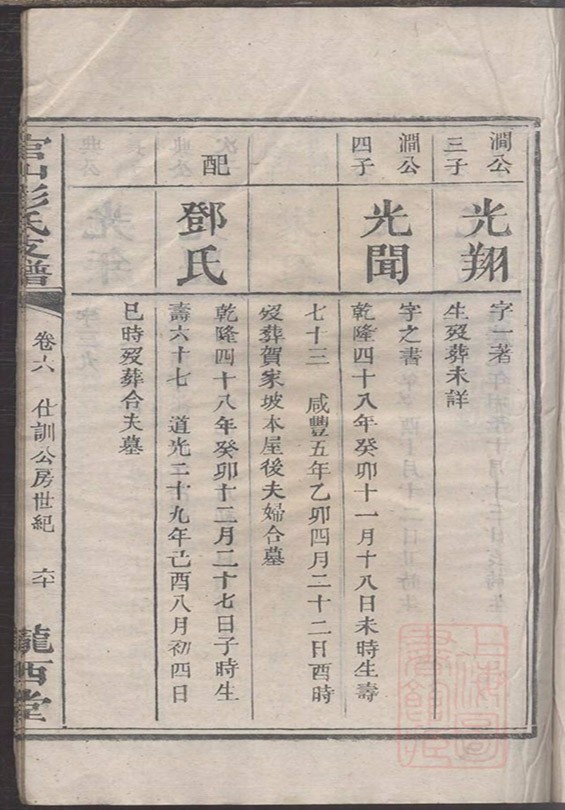 澗公
三子
光翔
字一著
生歿葬未詳
澗公
四子
光聞
字之書
乾隆四十八年癸卯十一月十八日未時生壽
七十三 咸豐五年乙卯四月二十二日酉時
歿葬賀家坡本屋後夫婦合墓
配
鄧氏
乾隆四十八年癸卯十二月二十七日子時生
壽六十七 道光二十九年己酉八月初四日
巳時歿葬合夫墓
官山彭氏支譜
卷六 仕訓公房世紀 六十
隴西堂
上海圖
書館藏